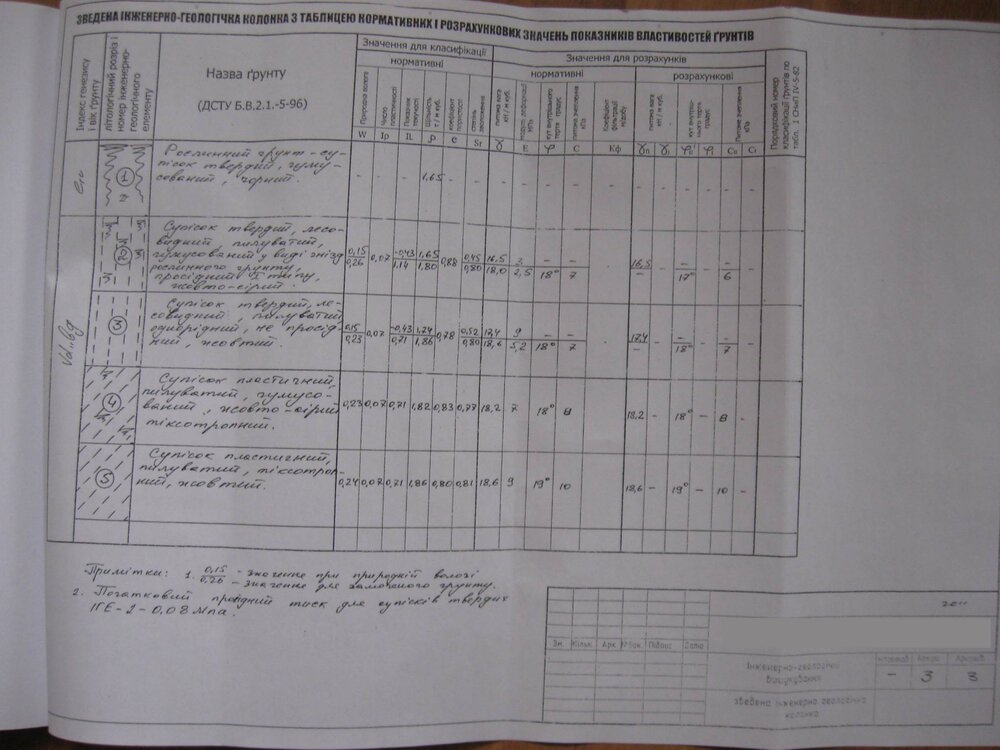 ЗВЕДЕНА ІНЖЕНЕРНО-ГЕОЛОГІЧКА КОЛОНКА З ТАБЛИЦЕЮ НОРМАТИВНИХ І РОЗРАХУНКОВИХ ЗНАЧЕНЬ ПОКАЗНИКІВ ВЛАСТИВОСТЕЙ ҐРУНТІВ
Індекс генезису і вік ґрунту
літологічний розріз і номер інженерно-геологічного елементу
Назва ґрунту
(ДСТУ Б.В.2.1.-5-96)
Значення для класифікації
Значення для розрахунків
нормативні
нормативні
розрахункові
Порядковий номер класифікації ґрунтів по табл. 1 СНиП IV-5-82
Природна вологa
Число пластичності
Показник текучості
Щільність т / м куб.
коефіцієнт пористості
степінь зволоження
питома вага кН / м куб.
модуль деформації МПа
кут внутрішнього тертя градус
питоме зчеплення кПа
Коефіцієнт фільтрації м/добу
W Ip IL ρ e Sr γ E φ C Кф γп γі φп φі Cп Cі
1
Рослинний ґрунт-су-
пісок твердий, гуму-
сований, чорний.
- - - 1,65 - - - - - - - - - - - - -
2
Супісок твердий, лесо-
видний, пилуватий,
гумусований у виді гнізд
рослинного ґрунту,
просідний II типу,
жовто-сірий.
0,15 0,07 -0,43 1,65 0,88 0,45 16,5 - - 16,5 - -
0,26 1,14 1,80 0,80 18,0 2,5 18° 7 - 17° 6
Vd..bg
3
Супісок твердий, ле-
совидний, пилуватий
однорідний, не просід-
ний, жовтий.
0,15 0,07 -0,43 1,74 0,78 0,52 17,4 9 - - 17,4 - -
0,23 0,71 1,86 0,80 18,6 5,2 18° 7 - 18° 7
4
Супісок пластичний,
пилуватий, гумусо-
ваний, жовто-сірий
тіксотропний.
0,23 0,07 0,71 1,82 0,83 0,77 18,2 7 18° 8 18,2 - 18° - 8 -
5
Супісок пластичний,
пилуватий, тіксотроп-
ний, жовтий.
0,24 0,07 0,71 1,86 0,80 0,81 18,6 9 19° 10 18,6 - 19° - 10 -
Примітки: 1. 0,15 - значення при природній вологі
0,26 - значення для замоченого ґрунту.
2. Початковий просідний тиск для супісків твердих
ІГЕ-2-0,08 Мпа.
Зм. Кільк. Арк. №док. Підпис Дата
Інженерно-геологічні
вишукування
- 3 3
зведена інженерно геологічна
колонка